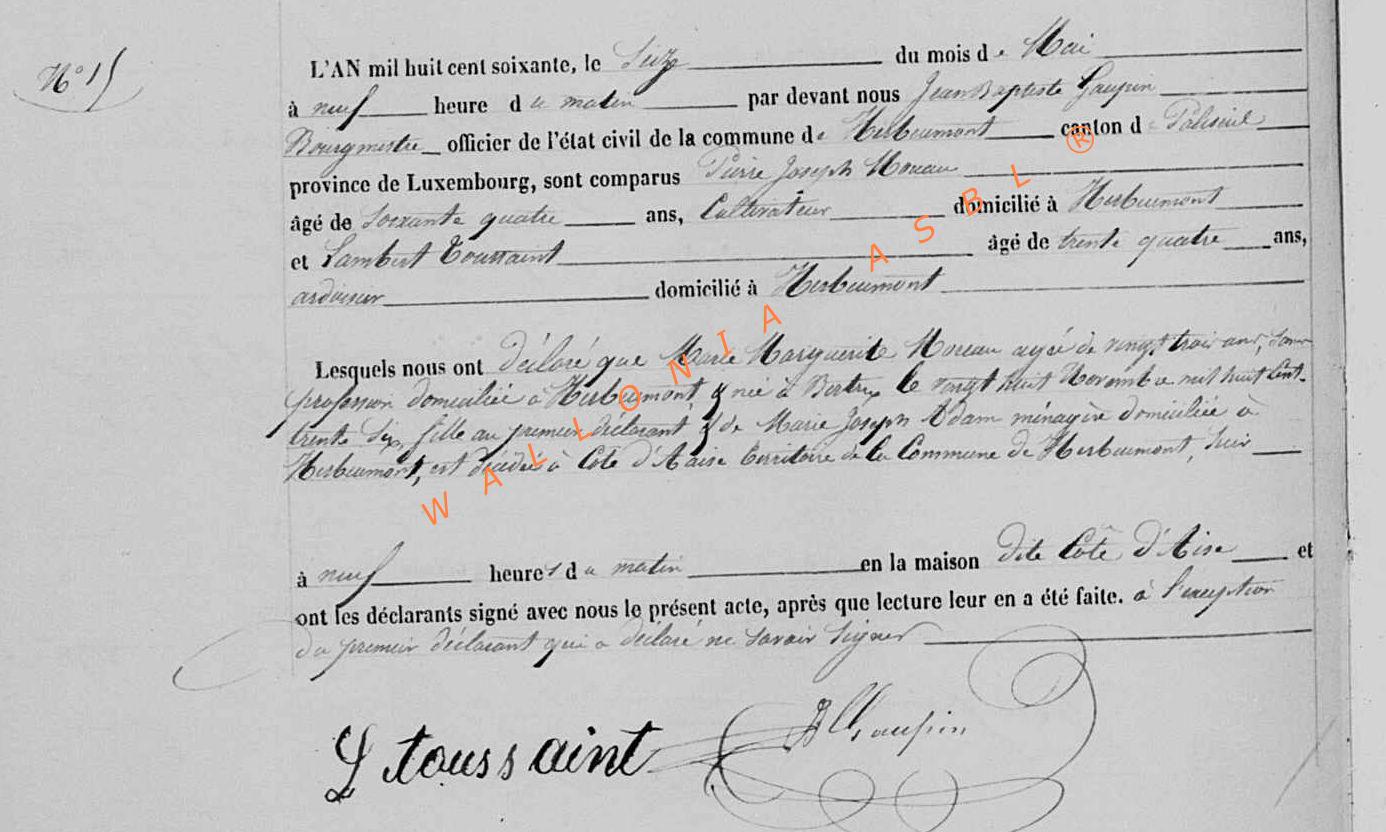 N° 15
L'AN mil huit cent soixante, le Seize du mois de Mai
à neuf heure du matin par devant nous Jean Baptiste Gaupin
Bourgmestre officier de l'état civil de la commune de Herbeumont canton de Paliseul
province de Luxembourg, sont comparus Pierre Joseph Moreau
âgé de soixante quatre ans, Cultivateur domicilié à Herbeumont
et Lambert Toussaint âgé de trente quatre ans,
ardoisier domicilié à Herbeumont
Lesquels nous ont déclaré que Marie Marguerite Moreau agée de vingt trois ans, sans
profession domiciliée à Herbeumont, & née à Bertrix le vingt huit Novembre mil huit Cent-
trente Six, fille au premier déclarant & de Marie Joseph Adam ménagère domiciliée à
Herbeumont, est décédée à Côte d'Aise territoire de la Commune de Herbeumont, hier
à neuf heures du matin en la maison dite Côte d'Aise et
ont les déclarants signé avec nous le présent acte, après que lecture leur en a été faite. à l'exception
du premier déclarant qui a déclaré ne savoir signer
L toussaint Gaupin
WALLONIA ASBL ®